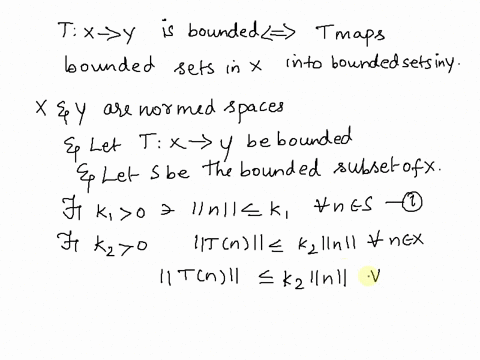 T: x→y is bounded⇔ T maps
bounded sets in X into bounded sets in y.
X & y are normed spaces
& Let T: x→y be bounded
& Let S be the bounded subset of x.
∃ k₁>0 ∋ ||n|| ≤ k₁ ∀n∈S —①
∃ k₂>0 ||T(n)|| ≤ k₂||n|| ∀n∈X
||T(n)|| ≤ k₂||n|| ∀